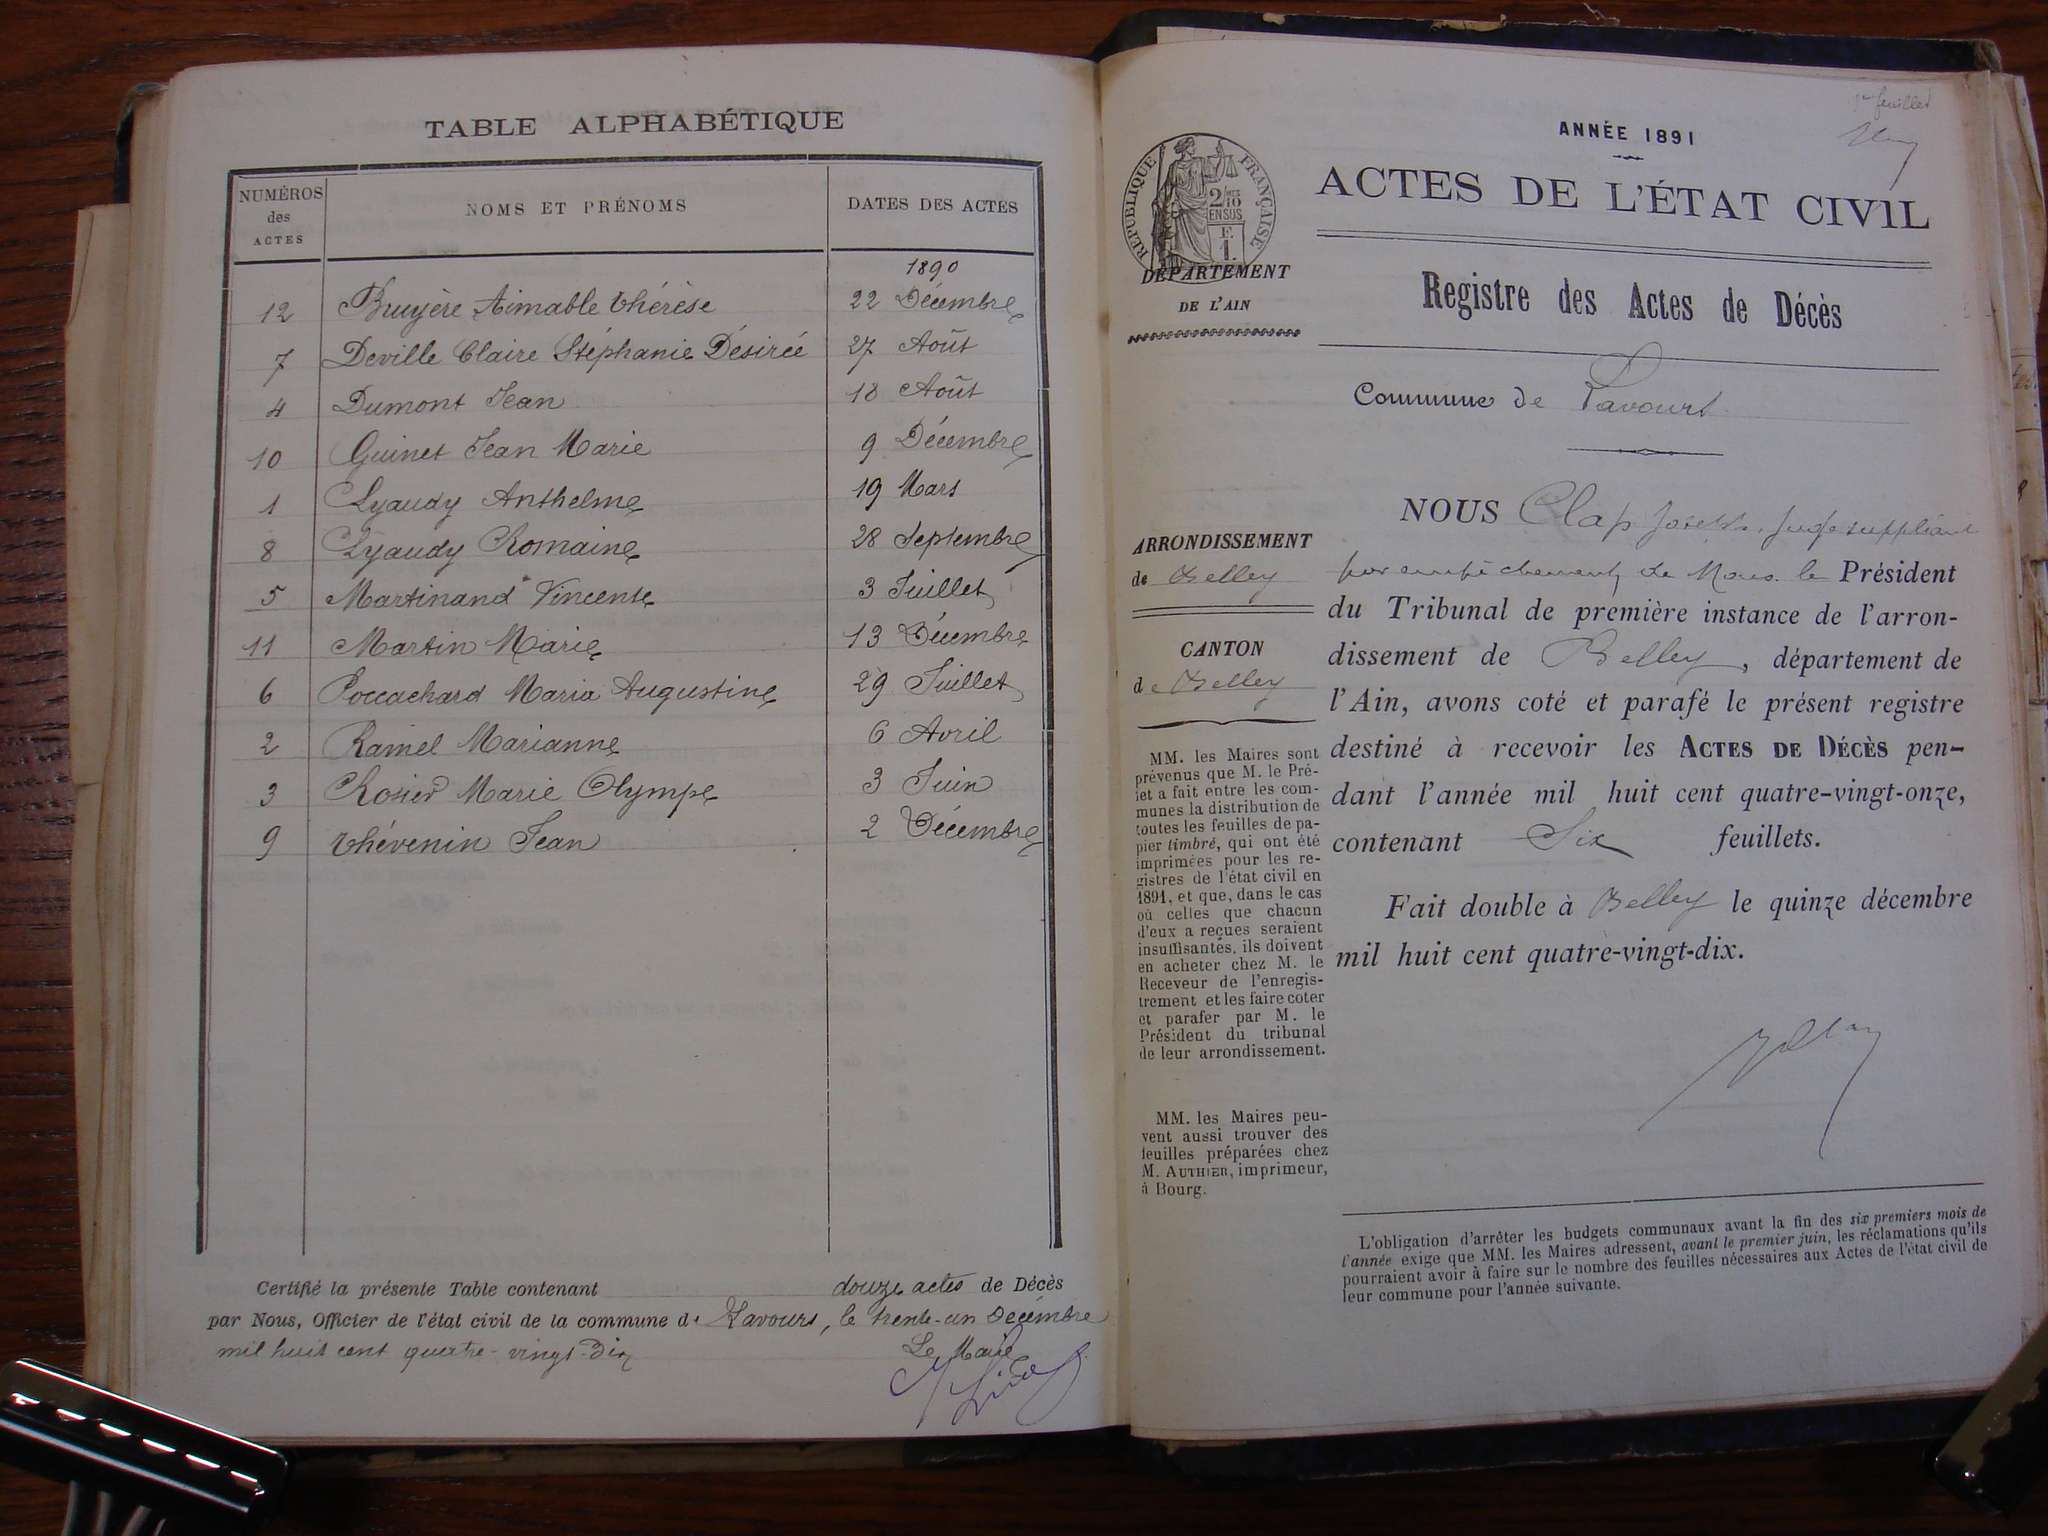 TABLE ALPHABÉTIQUE
NUMÉROS des ACTES NOMS ET PRÉNOMS DATES DES ACTES
1890
12 Bruyère Aimable Thérèse 22 Décembre
7 Deville Claire Stéphanie Désirée 27 Août
4 Dumont Jean 18 Août
10 Guinet Jean Marie 9 Décembre
1 Lyaudy Anthelme 19 Mars
8 Lyaudy Romaine 28 Septembre
5 Martinand Vincente 3 Juillet
11 Martin Marie 13 Décembre
6 Poccachard Maria Augustine 29 Juillet
2 Ramel Marianne 6 Avril
3 Rosier Marie Olympe 3 Juin
9 Thévenin Jean 2 Décembre
Certifié la présente Table contenant douze actes de Décès
par Nous, Officier de l'état civil de la commune de Lavours, le trente-un Décembre
mil huit cent quatre-vingt-dix
Le Maire
1er feuillet
ANNÉE 1891
ACTES DE L'ÉTAT CIVIL
RÉPUBLIQUE FRANÇAISE
2/10 EN SUS
E.
1.
DÉPARTEMENT
DE L'AIN
Registre des Actes de Décès
Commune de Lavours
ARRONDISSEMENT
de Belley
CANTON
de Belley
NOUS Clap Joseph, Juge suppléant
par empêchement de Mons. le Président
du Tribunal de première instance de l'arron-
dissement de Belley, département de
l'Ain, avons coté et parafé le présent registre
destiné à recevoir les ACTES DE DÉCÈS pen-
dant l'année mil huit cent quatre-vingt-onze,
contenant Six feuillets.
Fait double à Belley le quinze décembre
mil huit cent quatre-vingt-dix.
MM. les Maires sont
prévenus que M. le Pré-
fet a fait entre les com-
munes la distribution de
toutes les feuilles de pa-
pier timbré, qui ont été
imprimées pour les re-
gistres de l'état civil en
1891, et que, dans le cas
où celles que chacun
d'eux a reçues seraient
insuffisantes, ils doivent
en acheter chez M. le
Receveur de l'enregis-
trement et les faire coter
et parafer par M. le
Président du tribunal
de leur arrondissement.
MM. les Maires peu-
vent aussi trouver des
feuilles préparées chez
M. AUTHIER, imprimeur,
à Bourg.
L'obligation d'arrêter les budgets communaux avant la fin des six premiers mois de
l'année exige que MM. les Maires adressent, avant le premier juin, les réclamations qu'ils
pourraient avoir à faire sur le nombre des feuilles nécessaires aux Actes de l'état civil de
leur commune pour l'année suivante.